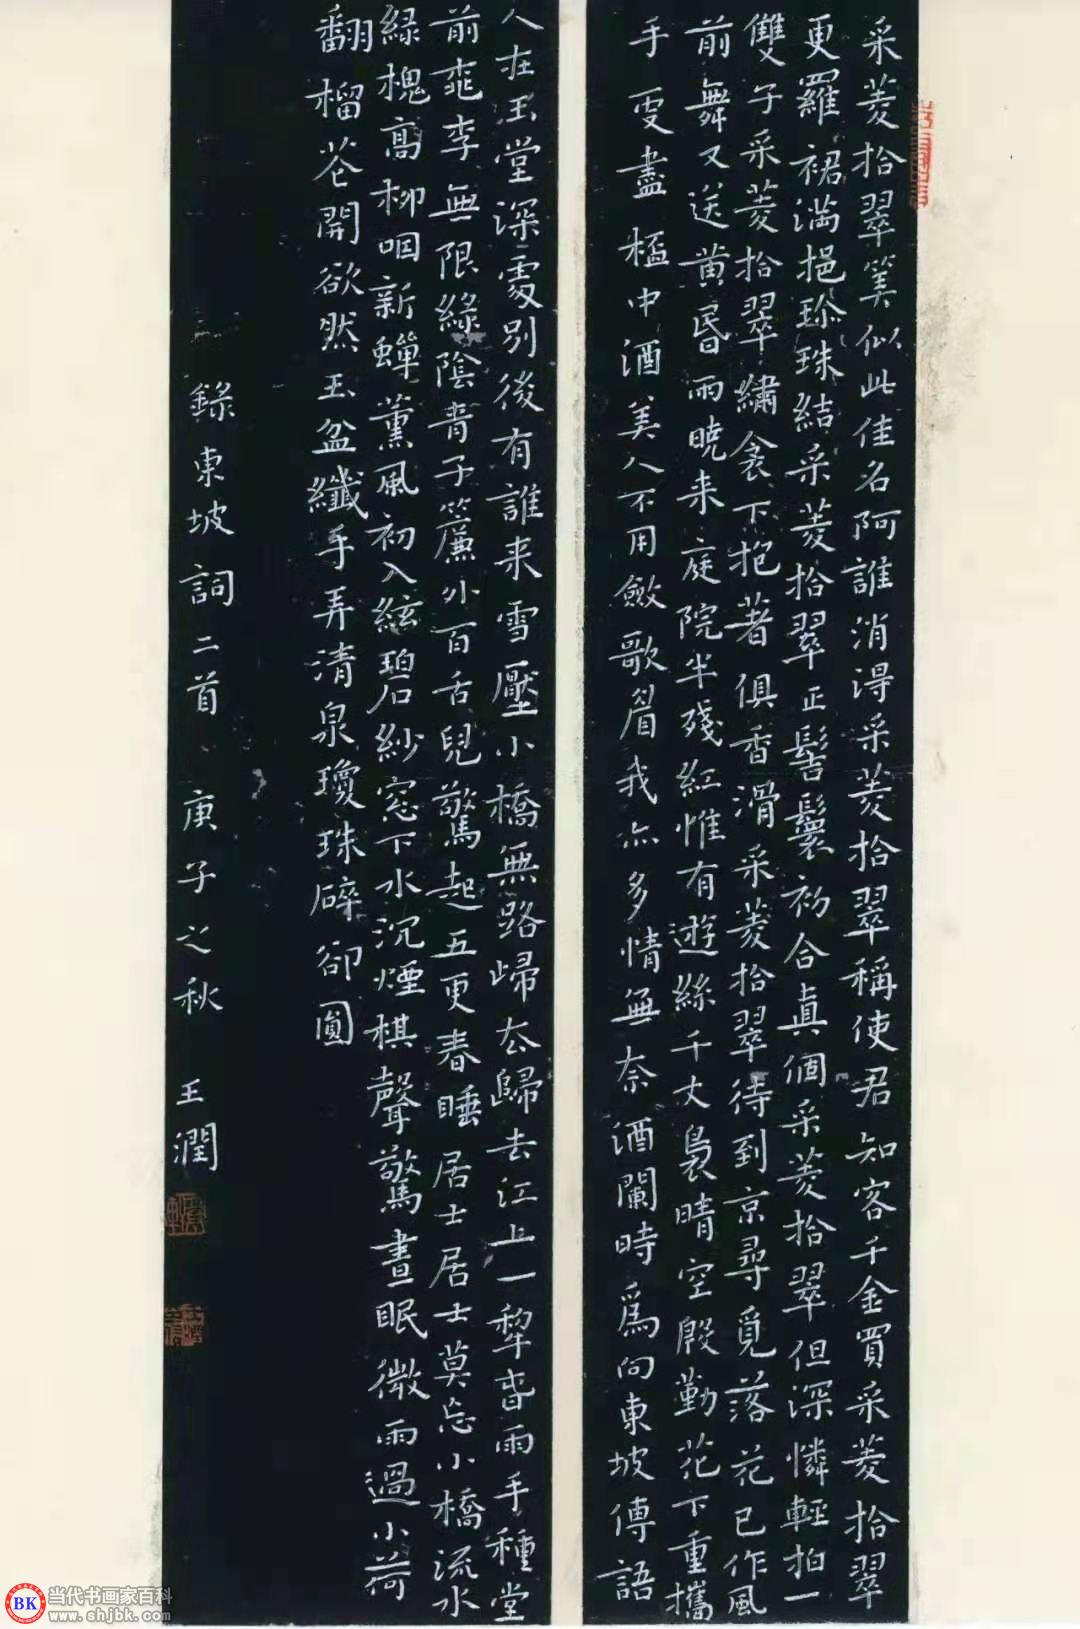 采菱拾翠筭似此佳名阿誰消得采菱拾翠稱使君知客千金買采菱拾翠
更羅裙滿挹珍珠結采菱拾翠正髻鬟初合真個采菱拾翠但深憐輕拍一
雙子采菱拾翠繡衾下抱著俱香滑采菱拾翠待到京尋覓落花已作風
前舞又送黃昏雨曉来庭院半殘紅惟有遊絲千丈裊晴空殷勤花下重攜
手更盡桮中酒美人不用斂歌眉我亦多情無奈酒闌時爲向東坡傳語
人在玉堂深處別後有誰来雪壓小橋無路歸去歸去江上一犂春雨手種堂
前桃李無限綠陰青子簾外百舌兒驚起五更春睡居士居士莫忘小橋流水
綠槐高柳咽新蟬薰風初入絃碧紗窓下水沉煙棋聲驚晝眠微雨過小荷
翻榴花開欲然玉盆纖手弄清泉瓊珠碎卻圓
錄東坡詞二首 庚子之秋 王潤
BK 当代书画家百科
www.shjbk.com